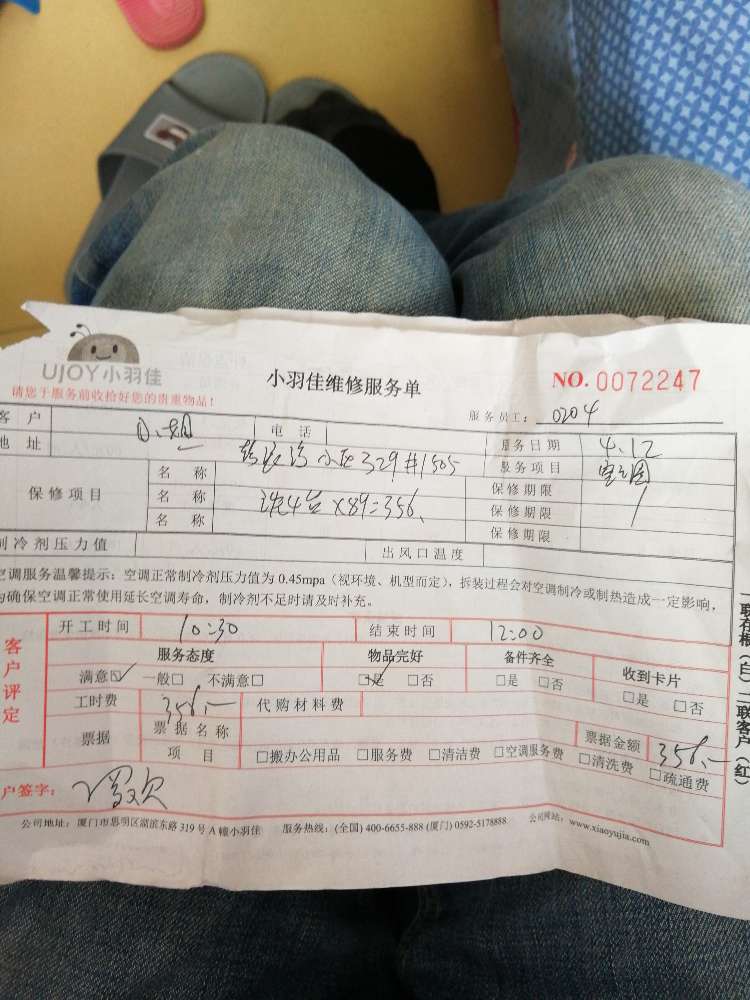 UJOY小羽佳
小羽佳维修服务单
NO. 0072247
请您于服务前收拾好您的贵重物品！
服务员工： 0204
客 户 电 话 服务日期 4.12
地 址 小区329#1505 服务项目
保修项目 名 称 洗4台×89=356 保修期限
名 称 保修期限
名 称 保修期限
制冷剂压力值 出风口温度
空调服务温馨提示：空调正常制冷剂压力值为 0.45mpa（视环境、机型而定），拆装过程会对空调制冷或制热造成一定影响，
为确保空调正常使用延长空调寿命，制冷剂不足时请及时补充。
客户评定
开工时间 10:30 结束时间 12:00
服务态度 物品完好 备件齐全 收到卡片
满意☑ 一般□ 不满意□ ☑是 □否 □是 □否 □是 □否
工时费 356.— 代购材料费
票据 票据名称 票据金额 356.—
项 目 □搬办公用品 □服务费 □清洁费 □空调服务费 □清洗费 □疏通费
户签字：
公司地址：厦门市思明区湖滨东路 319 号 A 幢小羽佳 服务热线：(全国) 400-6655-888 (厦门) 0592-5178888 公司网站：www.xiaoyujia.com
一联存根（白）二联客户（红）